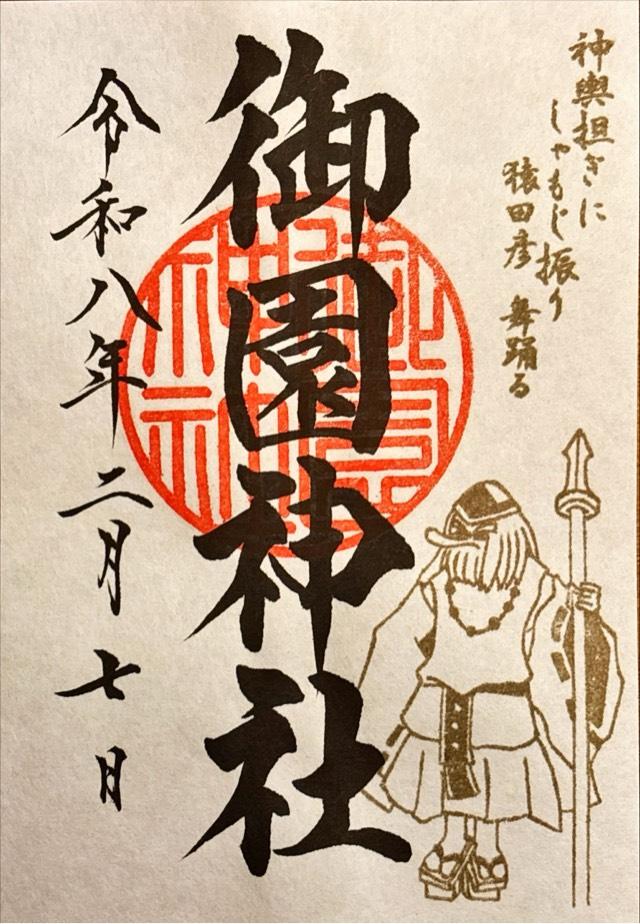 神輿担ぎに
しゃもじ振り
猿田彦 舞踊る
御園神社
令和八年二月七日